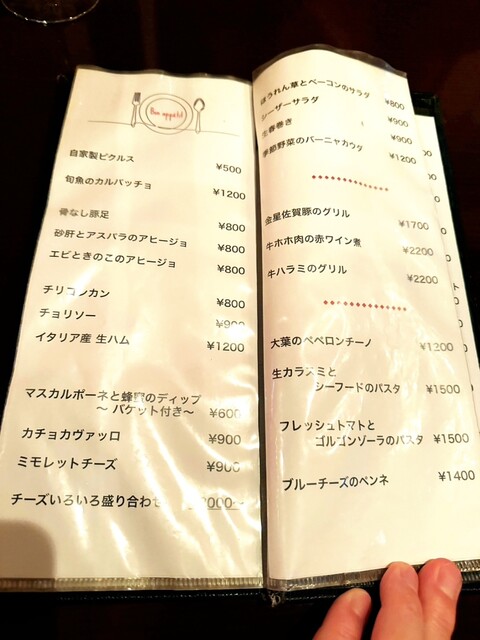 Bon appetit
自家製ピクルス ¥500
旬魚のカルパッチョ ¥1200
骨なし豚足 ¥800
砂肝とアスパラのアヒージョ ¥800
エビときのこのアヒージョ ¥800
チリコンカン ¥800
チョリソー ¥900
イタリア産 生ハム ¥1200
マスカルポーネと蜂蜜のディップ
～ バケット付き～ ¥600
カチョカヴァッロ ¥900
ミモレットチーズ ¥900
チーズいろいろ盛り合わせ
ほうれん草とベーコンのサラダ ¥800
シーザーサラダ ¥900
生春巻き ¥900
季節野菜のバーニャカウダ ¥1200
金星佐賀豚のグリル ¥1700
牛ホホ肉の赤ワイン煮 ¥2200
牛ハラミのグリル ¥2200
大葉のペペロンチーノ ¥1300
生カラスミと
シーフードのパスタ ¥1500
フレッシュトマトと
ゴルゴンゾーラのパスタ ¥1500
ブルーチーズのペンネ ¥1400